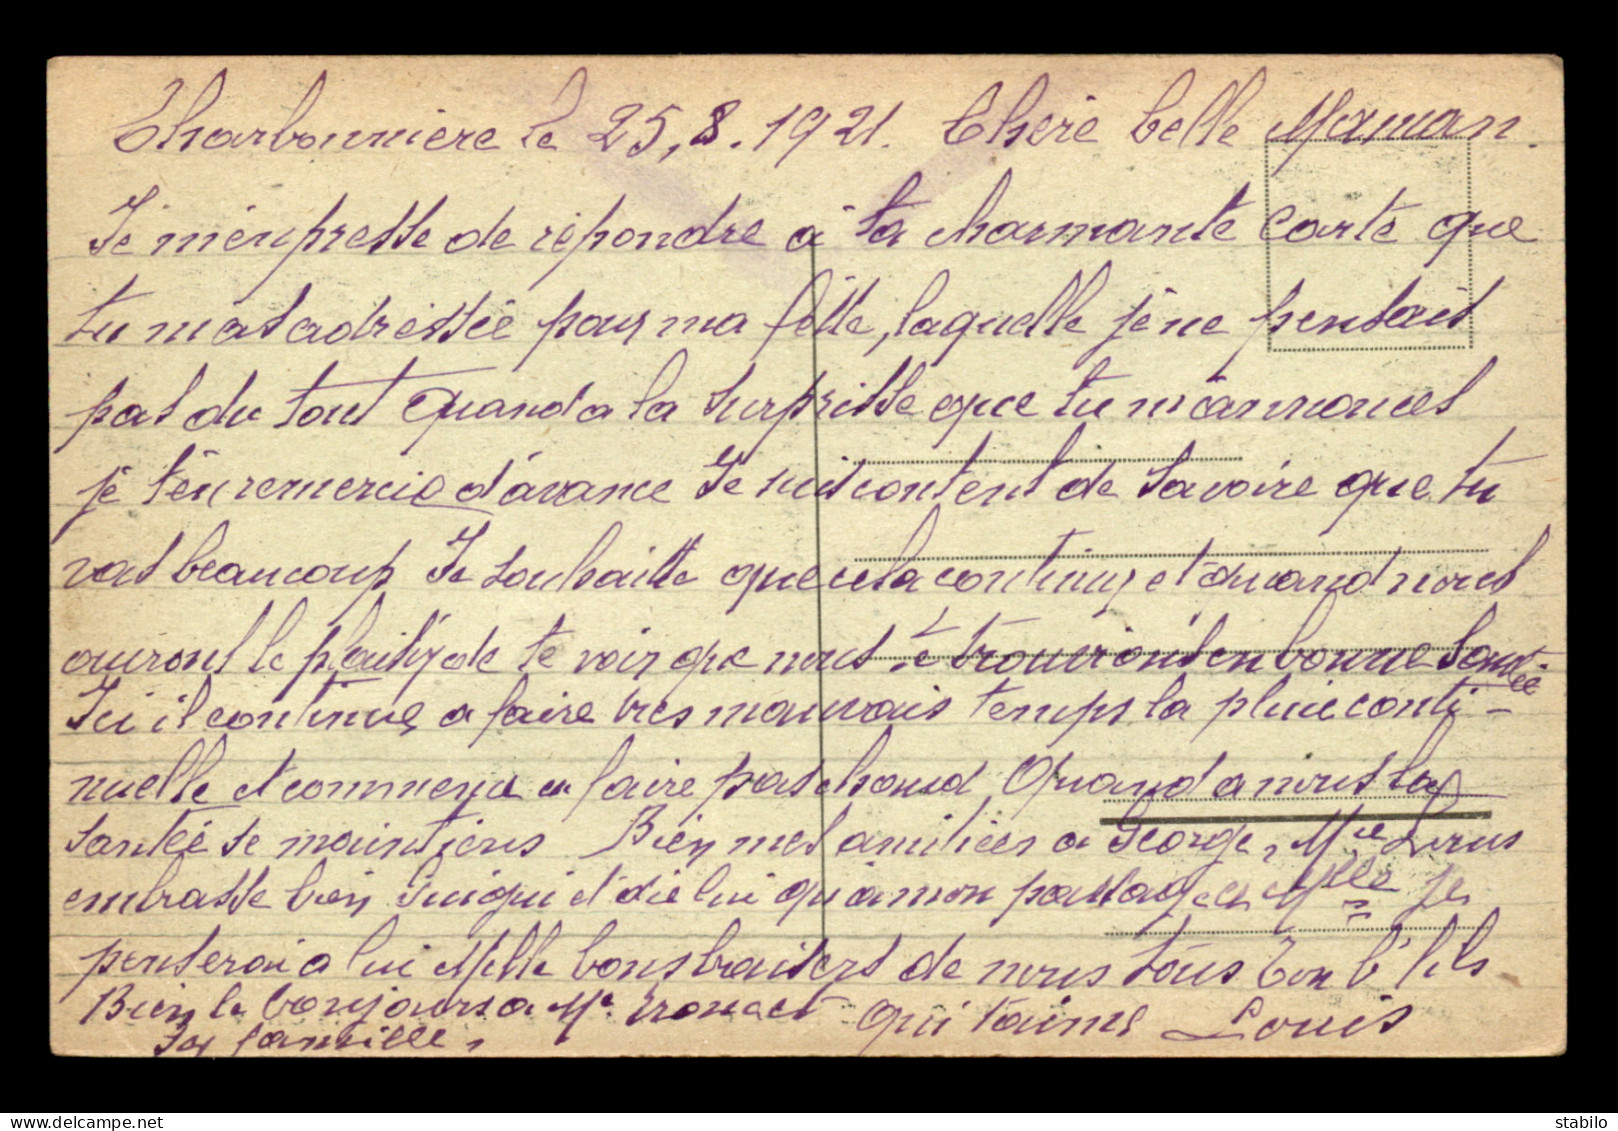 Charbonniere le 25.8.1921. Chère belle Maman.
Je m'enpresse de repondre a ta charmante carte que
tu mas adressée pour ma fête, laquelle je ne pensait
pas du tout Quand a la surprisse que tu m'annonces
je t'en remercie d'avance Je suis content de savoire que tu
vas beaucoup Je souhaitte que cela continue et quand nous
ouront le plaisir de te voir que nous te trouvions en bonne santée
Ici il continue a faire tres mauvais temps la pluie conti-
nuelle et commence a faire pas chaud Quand a nous la
santée se maintiens Bien mes amitiées a George, Mle Louis
embrasse bien qui et die lui qu'a mon passage Mlle je
penserai a lui Mille bons baisers de nous tous Ton b' fils
Bien le bonjours a Me qui t'aime Louis
Sa famille.
delcampe.net
stabilo